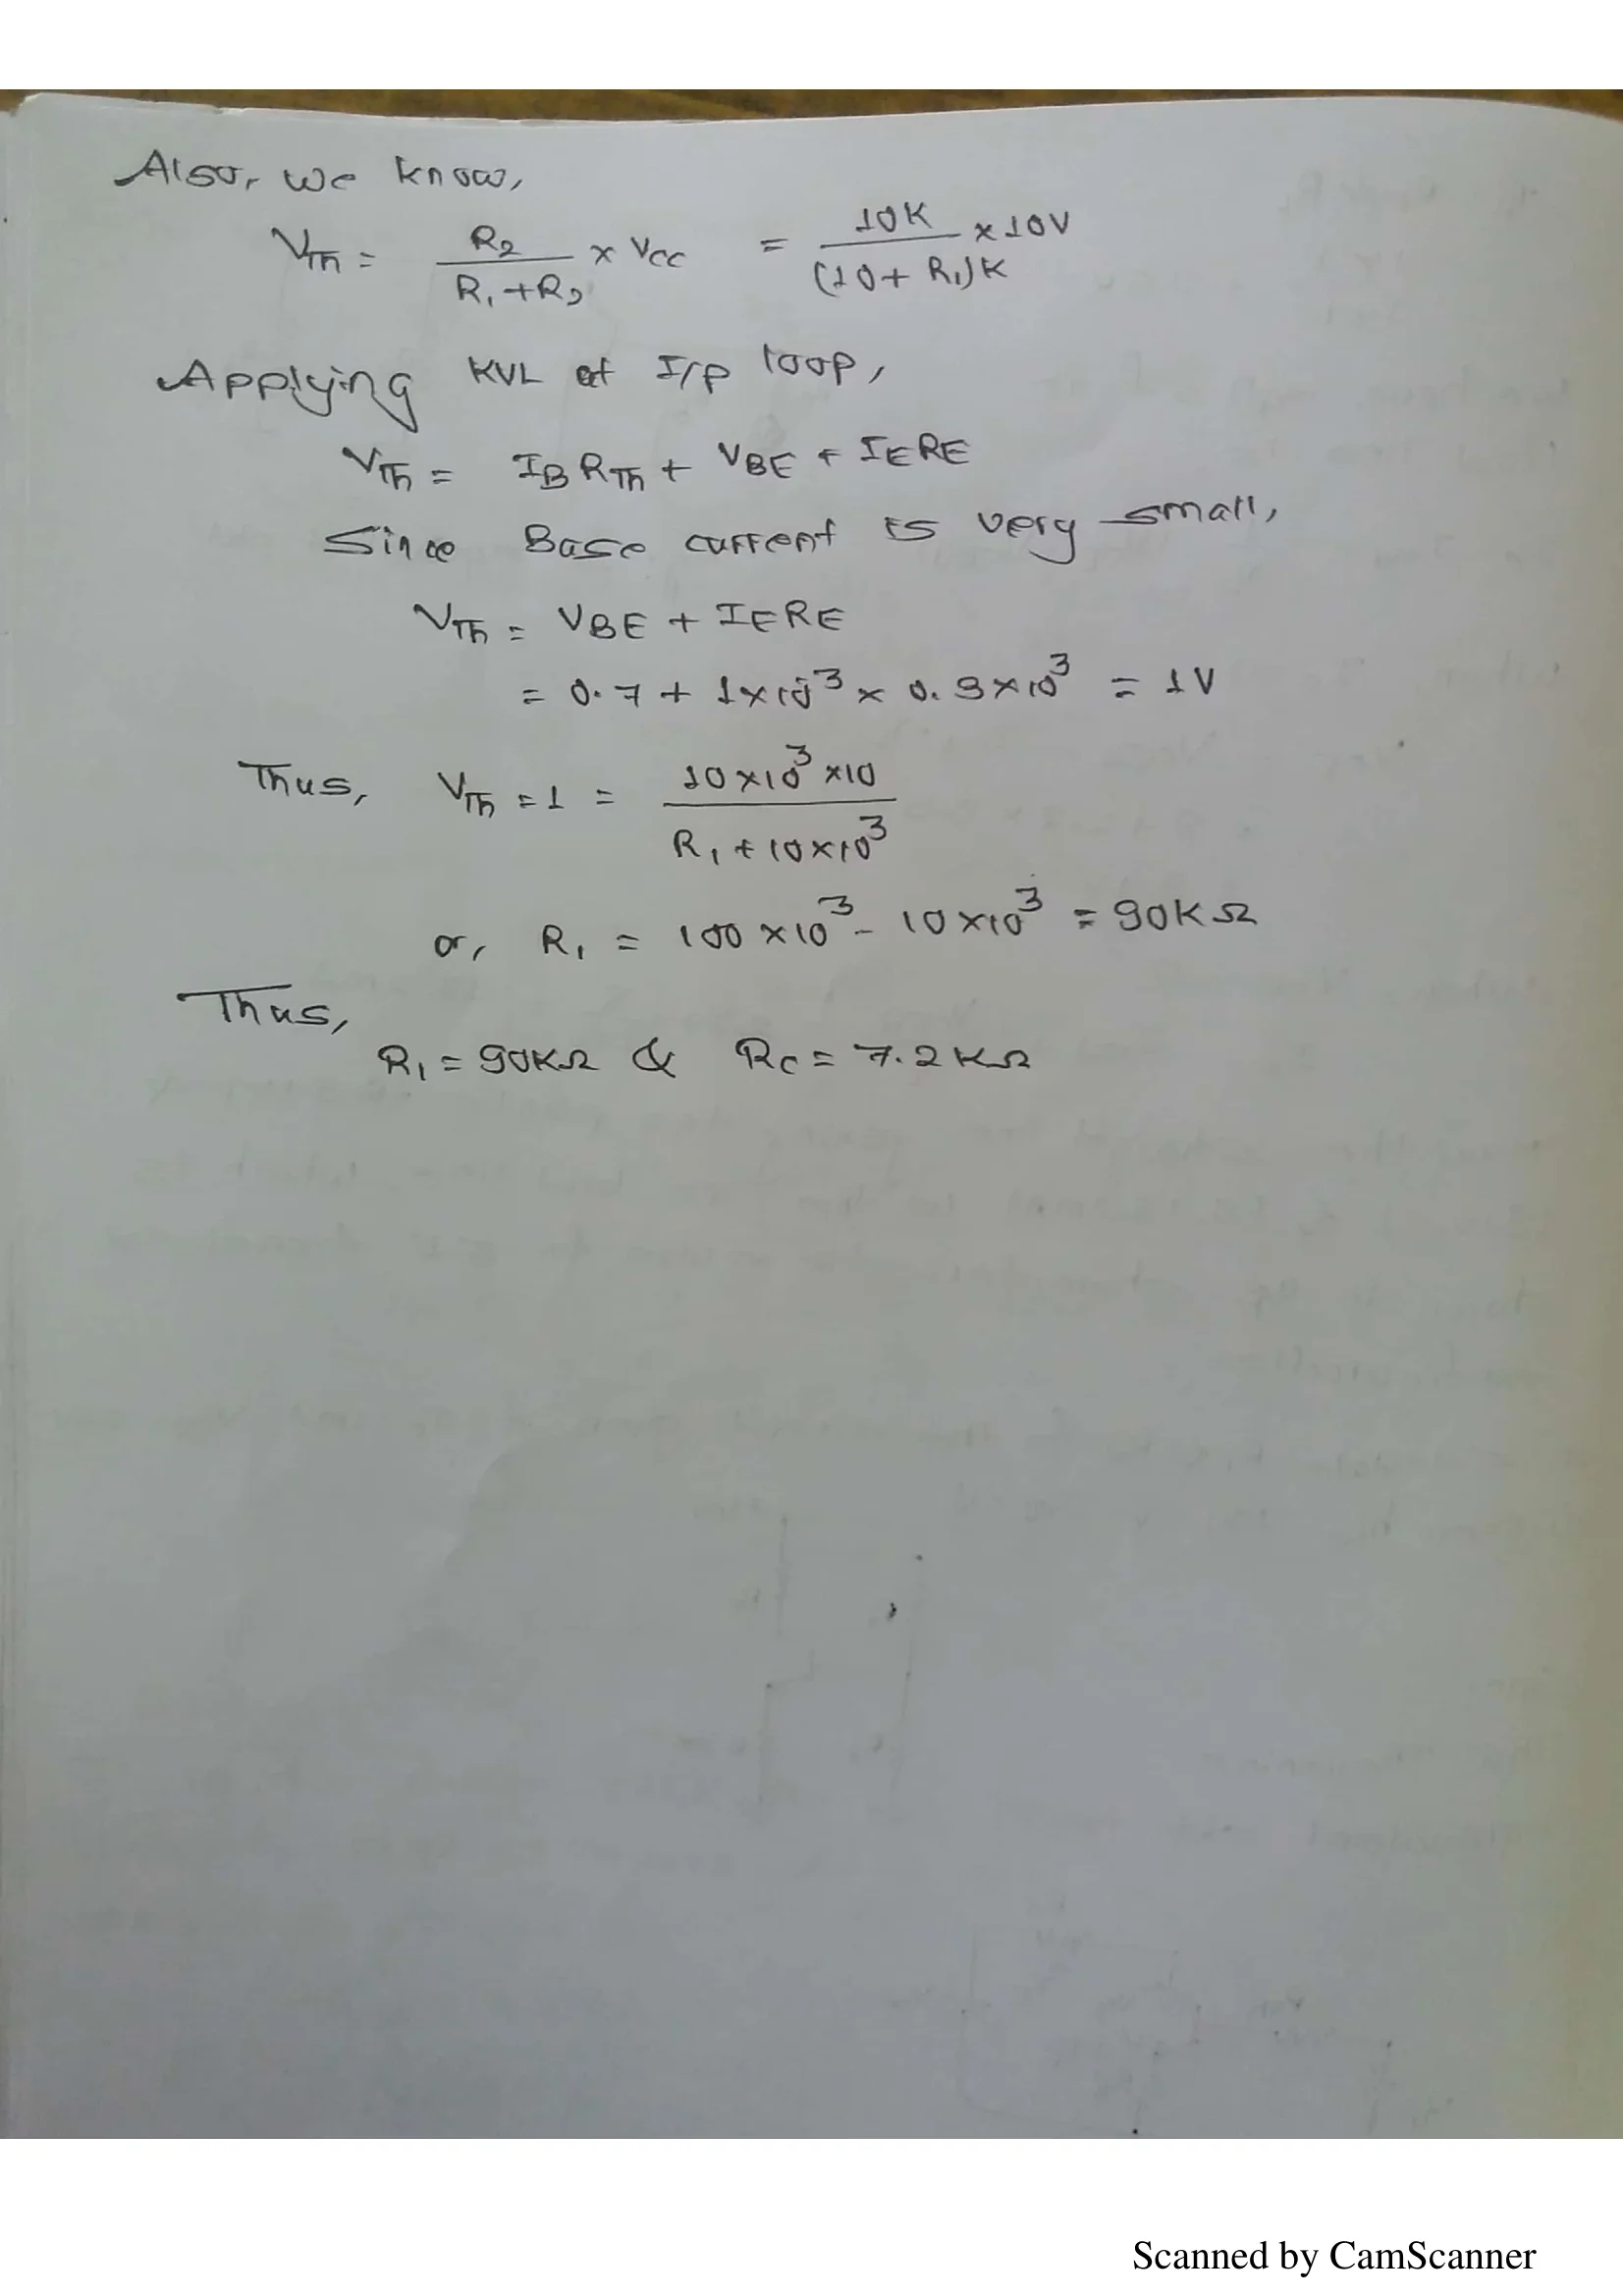 Also, we know,
VTh = R2 / (R1+R2) × Vcc = 10K / (10+R1)K × 10V
Applying KVL at I/p loop,
VTh = IB RTh + VBE + IERE
Since Base current is very small,
VTh = VBE + IERE
= 0.7 + 1×10^-3 × 0.3×10^3 = 1V
Thus, VTh = 1 = 10×10^3×10 / R1+10×10^3
or, R1 = 100×10^3 - 10×10^3 = 90KΩ
Thus,
R1 = 90KΩ & RC = 7.2KΩ
Scanned by CamScanner